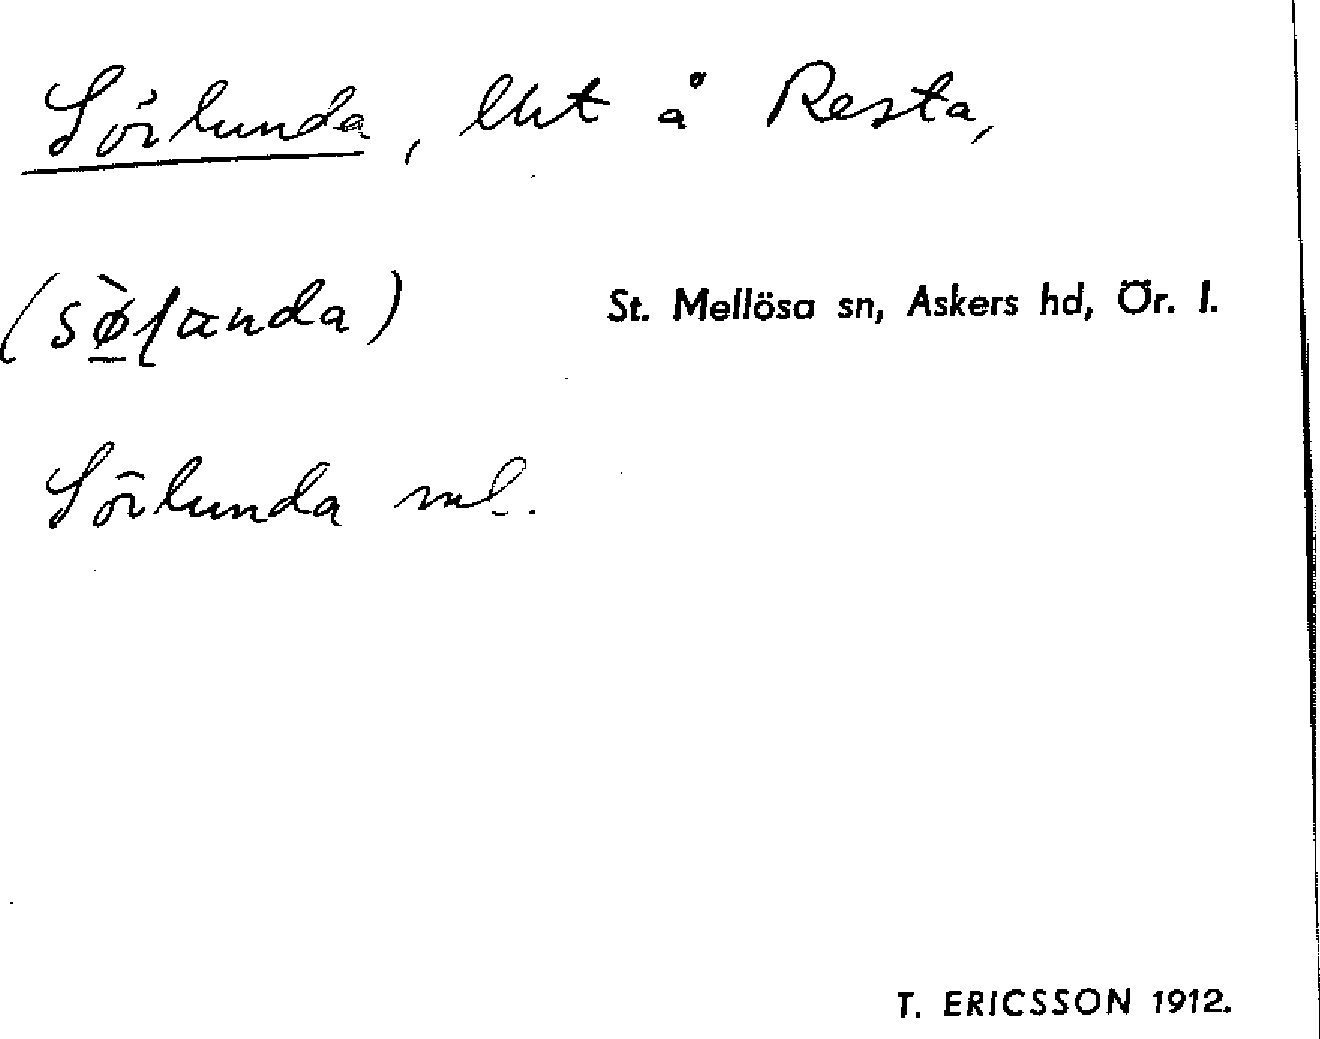 Sörlunda, lht å Resta,
(sø̀landa) St. Mellösa sn, Askers hd, Ör. l.
Sörlunda ml.
T. ERICSSON 1912.